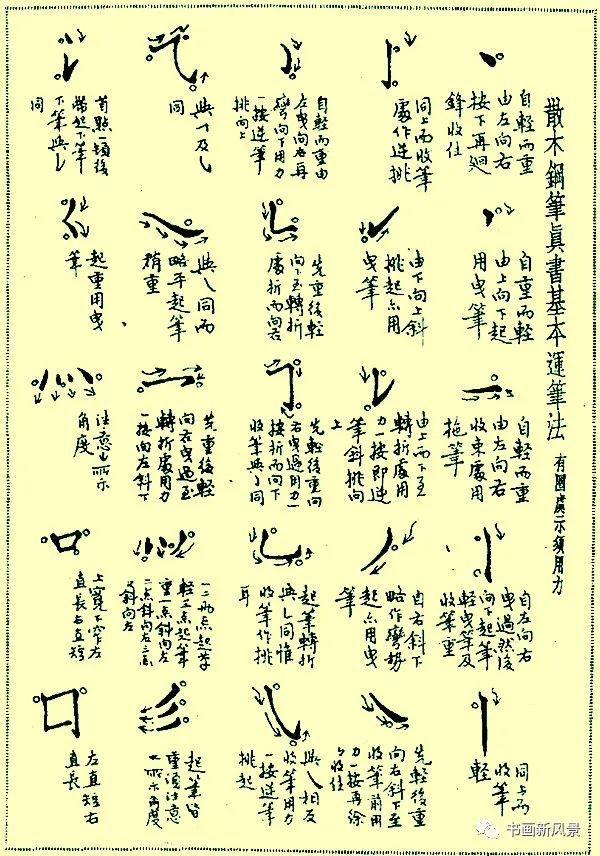 散木鋼筆真書基本運筆法 有圈處示須用力
自輕而重
由左向右
按下再廻
鋒收住
自重而輕
由上向下起
用曳筆
自輕而重
由左向右
收束處用
拖筆
自左向右
曳過然後
向下起筆
輕曳筆及
收筆重
同上而
收筆
輕
同上而收筆
處作逆挑
由下向上斜
挑起亦用
曳筆
由上而下至
轉折處用
力一按即逆
筆斜挑向
上
自右斜下
略作彎勢
起亦用曳
筆
先輕後重
向右斜下至
收筆前用
力一按再徐
々收住
自輕而重由
左曳向右再
彎向下用力
一按逆筆
挑向上
先重後輕
向下至轉折
處折而向右
先輕後重向
右曳過用力一
按折而向下
收筆與丁同
起筆轉折
與㇄同惟
收筆作挑
耳
與乀相反
收筆用力
一按逆筆
挑起
同
與乀同而
略平起筆
稍重
先重後輕
向右曳過至
轉折處用力
一按向左斜下
一二兩点起筆
輕三点起筆
重一点斜向左
二点斜向右三点
又斜向左
起筆皆
重須注意
所示角度
首點一頓後
帶起下筆
下筆與
同
起重用曳
筆
注意 所示
角度
上寬下窄左
直長右直短
左直短右
直長
书画新风景